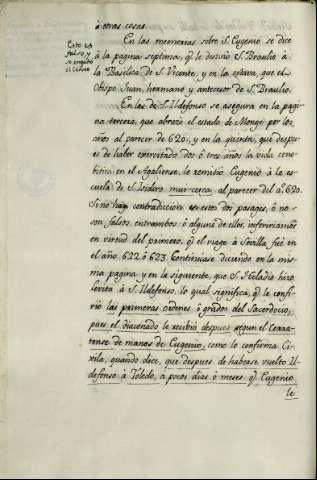 à otras cosas.
En las memorias sobre S. Eugenio se dice
à la pagina septima, q.e le destinò S. Braulio à
la Basilica de S. Vicente, y en la octava, que el
Obispo Juan, hermano y antecesor de S. Braulio.
En las de S. Ildefonso se asegura en la pagi-
na tercera, que abrazò el estado de Monge por los
años al parecer de 620., y en la quinta, que despu-
es de haber exercitado dos ò tres años la vida ceno-
bitica en el Agaliense, lo remitiò Eugenio à la es-
cuela de S. Isidoro muy cerca al parecer del a.º 620.
Si no hay contradiccion en estos dos pasages, ò no
son falsos entrambos ò alguno de ellos, infeririamos
en virtud del primero, q.e el viage à Sevilla fue en
el año 622 ò 623. Continúase diciendo en la mis-
ma pagina y en la siguiente, que S. Heladio hizo
levita à S. Ildefonso, lo qual significa, q.e le confi-
rio las primeras ordenes ò grados del Sacerdocio,
pues el diaconado le recibiò despues segun el
de manos de Eugenio, como lo confirma Ci-
xila, quando dice, que despues de haberse vuelto Il-
defonso à Toledo, a pocos dias ò meses q.e Eugenio
le
Esto es
falso, y